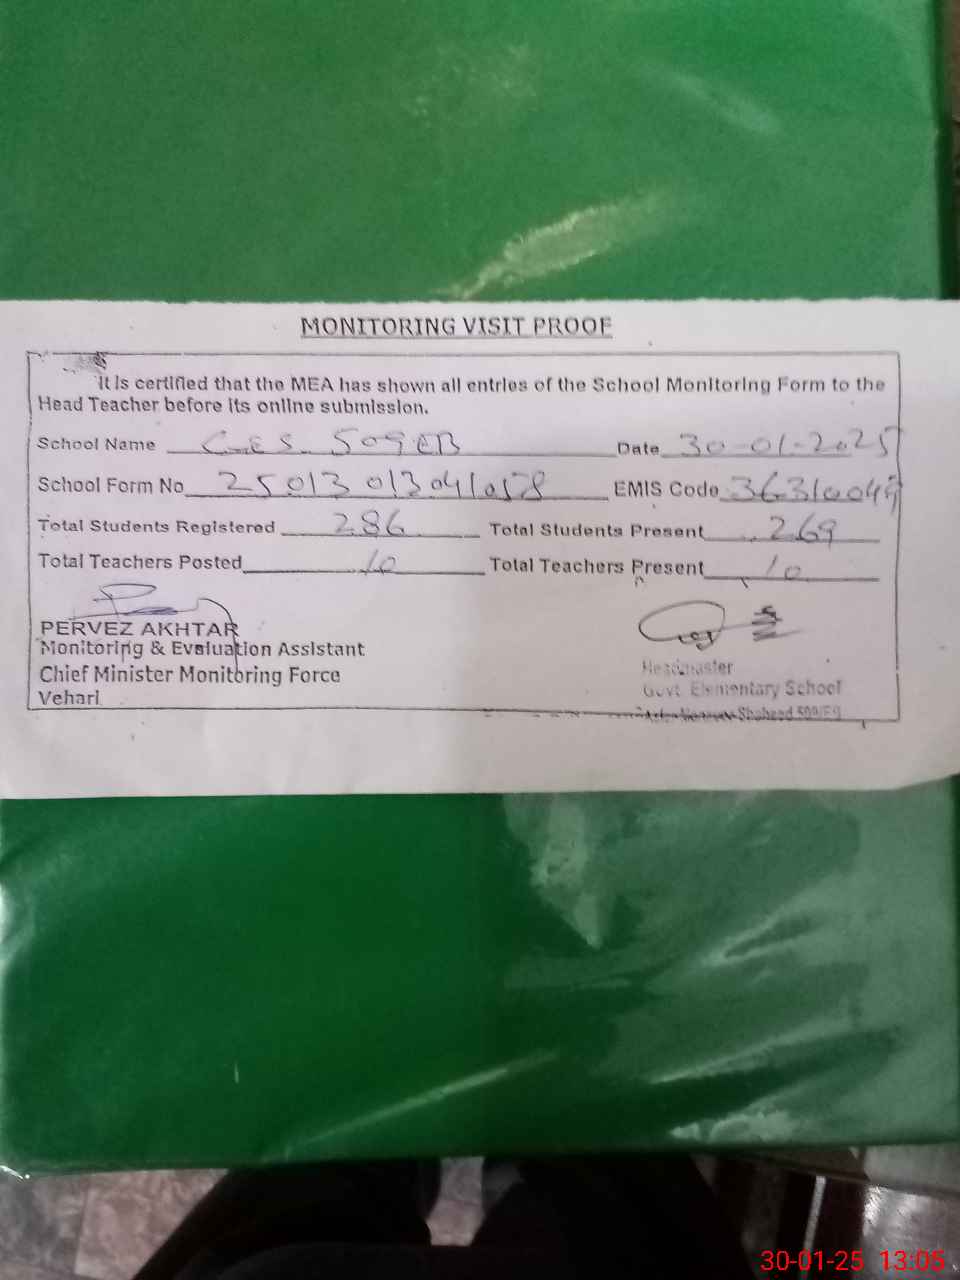 MONITORING VISIT PROOF
It is certified that the MEA has shown all entries of the School Monitoring Form to the
Head Teacher before its online submission.
School Name GES 509EB Date 30-01-2025
School Form No 25013013041058 EMIS Code 36310049
Total Students Registered 286 Total Students Present 269
Total Teachers Posted 10 Total Teachers Present 10
PERVEZ AKHTAR
Monitoring & Evaluation Assistant
Chief Minister Monitoring Force
Vehari
Headmaster
Govt. Elementary School
Shaheed 509/EB
30-01-25 13:05